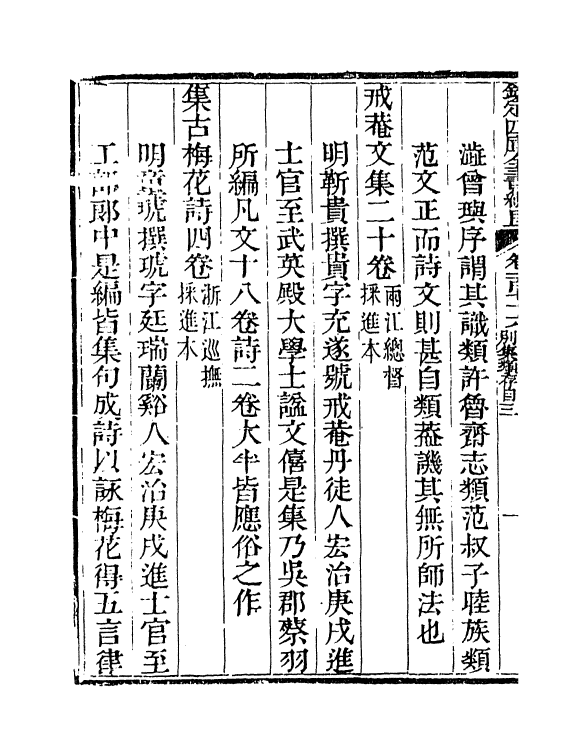 欽定四庫全書總目 卷一百七十六 別集類存目三 一
滋曾璵序謂其識類許魯齋志類范叔子睦族類
范文正而詩文則甚自類葢譏其無所師法也
戒菴文集二十卷 兩江總督採進本
明靳貴撰貴字充遂號戒菴丹徒人宏治庚戌進
士官至武英殿大學士諡文僖是集乃吳郡蔡羽
所編凡文十八卷詩二卷大半皆應俗之作
集古梅花詩四卷 浙江巡撫採進本
明童琥撰琥字廷瑞蘭谿人宏治庚戌進士官至
工部郎中是編皆集句成詩以詠梅花得五言律